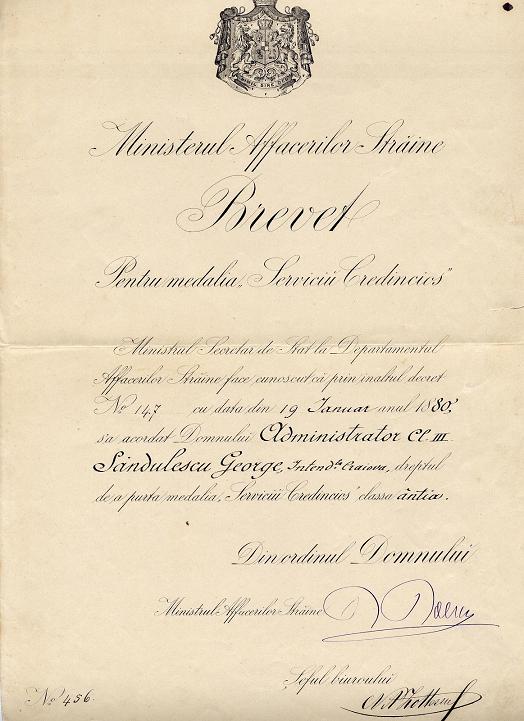 NIHIL SINE DEO
Ministerul Affacerilor Străine
Brevet
Pentru medalia „Serviciŭ Credincios"
Ministrul Secretar de Stat la Departamentul
Affacerilor Străine face cunoscut că prin înaltul decret
No 147 cu data din 19 Ianuar anul 1880,
s'a acordat Domnului Administrator Cl. III
Săndulescu George, Craiova, dreptul
de a purta medalia „Serviciŭ Credincios" classa ântĭa.
Din ordinul Domnului
Ministrul Affacerilor Străine
Șeful biuroului
No 456.